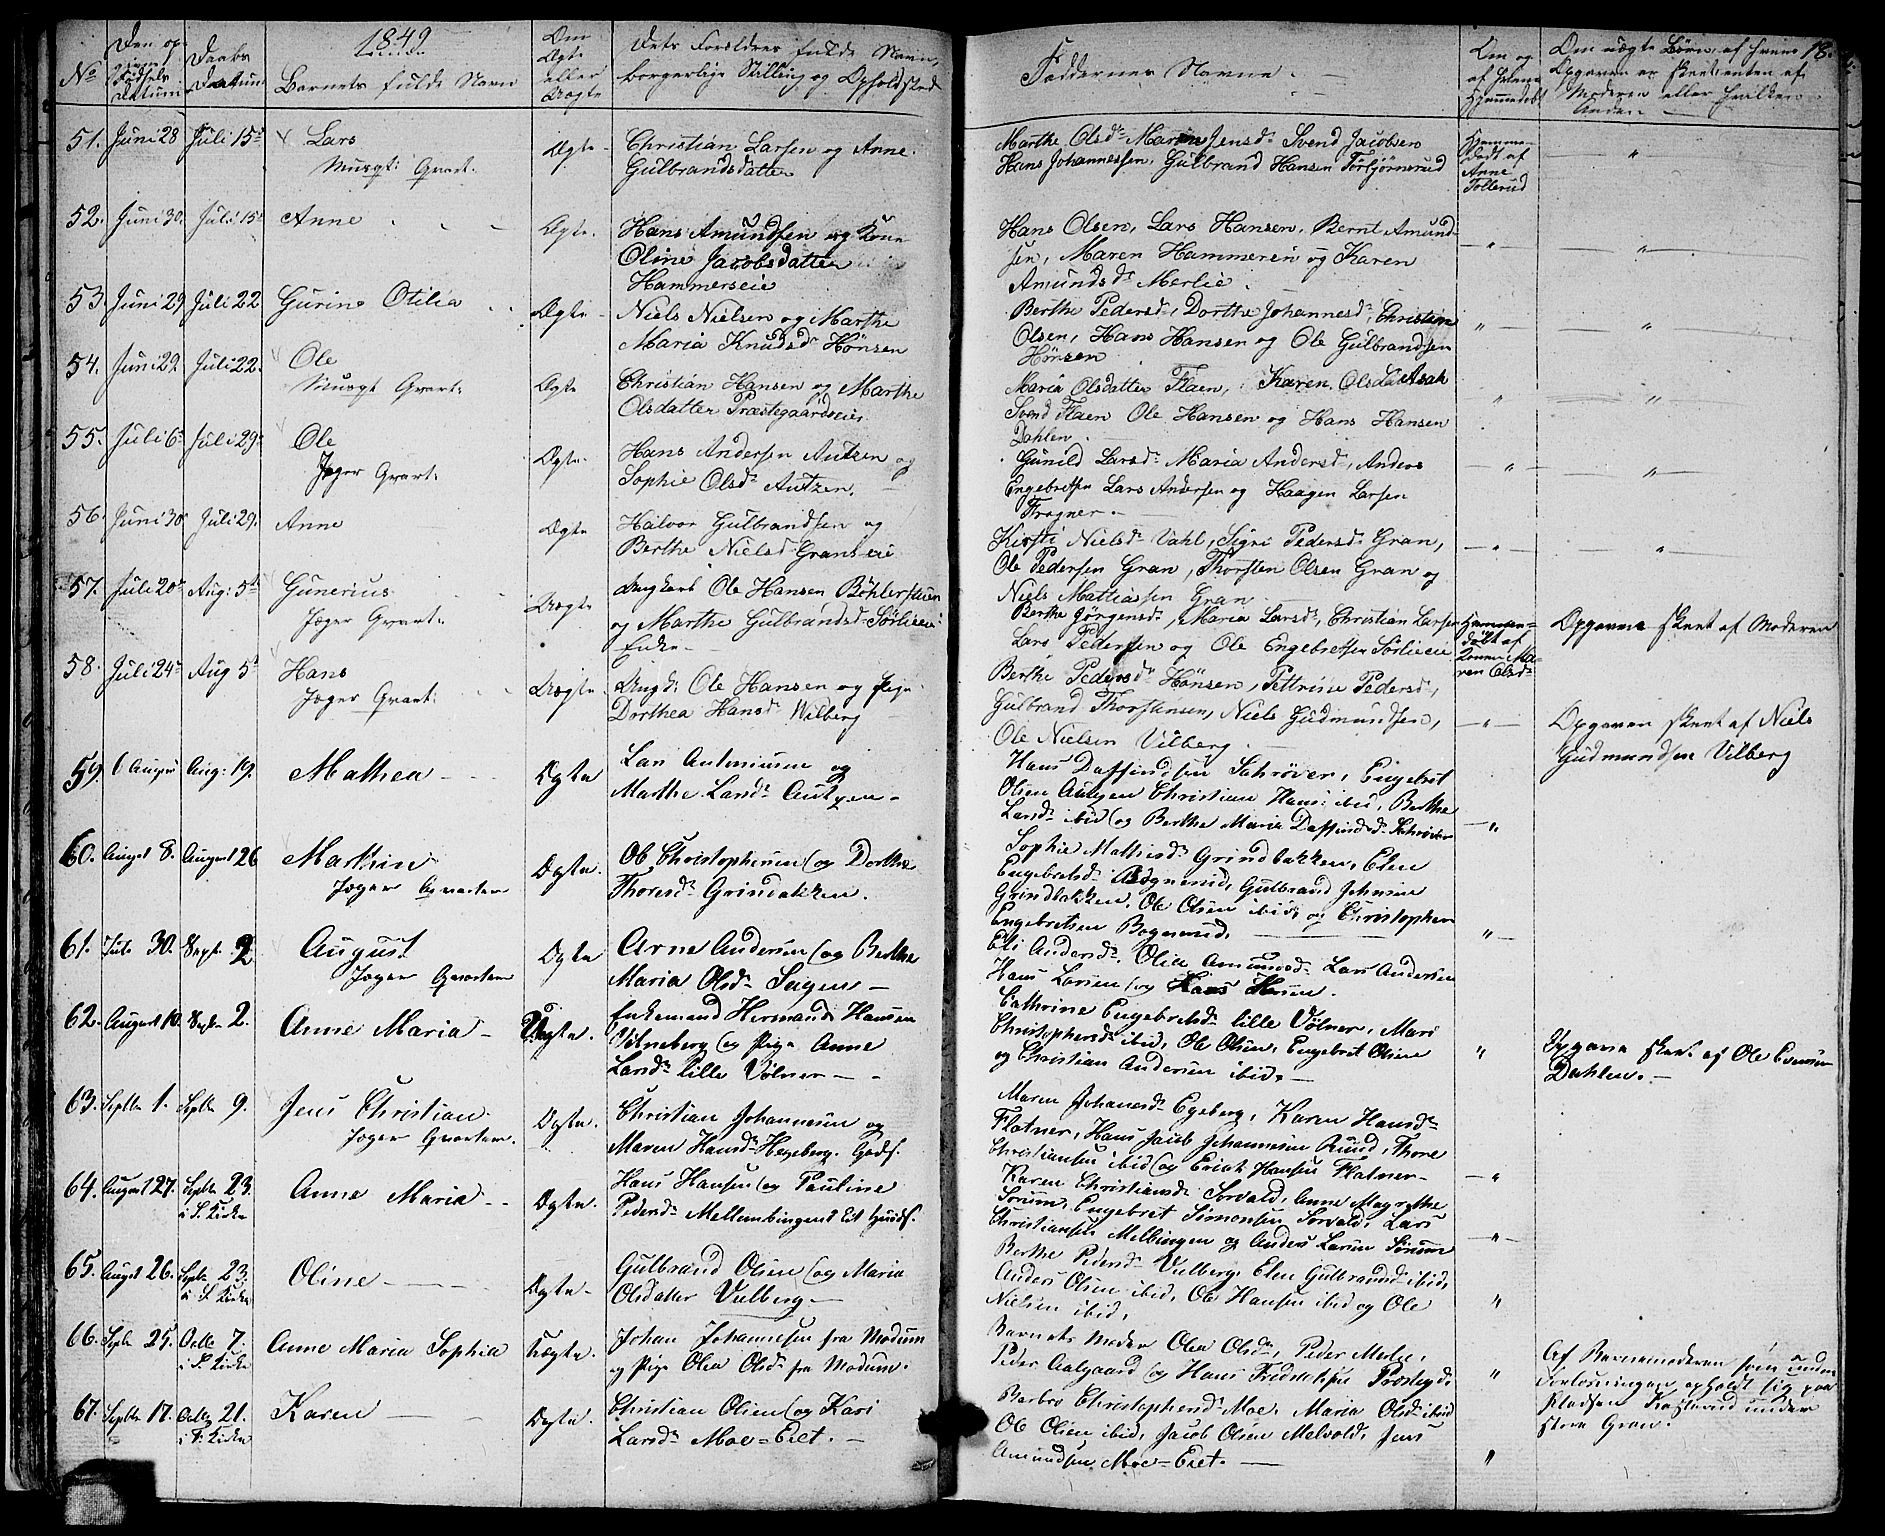 1849
No
Den op-
given
Fødsels
Datum
Daabs
Datum
Barnets fulde Navn
Om
Ægte
eller
Uægte
Dets Forældres fulde Navn,
borgerlige Stilling og Opholdsted
Faddernes Navne.
Om og
af hvem
Hjemmedøbt
Om uægte Børn, af hvem
Opgaven er skeet enten af
Moderen eller hvilken
Anden
18.
51. Juni 28 Juli 15 Lars Ægte
Christian Larsen og Anne
Gulbrandsdatter
Marthe Olsdr Maren Jensdr Svend Jacobsen
Hans Johannessen, Gulbrand Hansen Torbjørnsrud
Hjemme-
døbt af
Anne
Tollerud
52. Juni 30. Juli 15 Anne Ægte
Hans Amundsen og Kone
Oline Jacobsdatter
Hammerseie
Hans Olsen, Lars Hansen, Bernt Amund-
sen, Maren Hammeren og Karen
Amundsdr Merlie.
53. Juni 29 Juli 22 Gurine Otilia Ægte
Niels Nielsen og Marthe
Maria Knudsdr Hønsen
Berthe Pedersdr, Dorthe Johannesdr, Christian
Olsen, Hans Hansen og Ole Gulbrandsen
Hønsen
54. Juni 29 Juli 22. Ole Ægte
Christian Hansen og Marthe
Olsdatter Præstegaardseie
Maria Olsdatter Flaen, Karen Olsdatter Asak
Svend Flaen Ole Hansen og Hans Hansen
Dahlen
55. Juli 6 Juli 29 Ole
Jæger Qvart: Ægte
Hans Andersen Autzen og
Sophie Olsdr Autzen.
Gunild Larsdr Maria Andersdr, Anders
Engebretsen Lars Andersen og Haagen Larsen
Frogner.
56. Juni 30 Juli 29. Anne Ægte
Halvor Gulbrandsen og
Berthe Nielsdr Granseie
Kirsti Nielsdr Vahl, Sigri Pedersdr Gran,
Ole Pedersen Gran, Thorsten Olsen Gran og
Niels Mathiassen Gran
57. Juli 20 Aug: 5te Gunerius
Jæger Qvart: Uægte
Ungkarl Ole Hansen Böhlerseien
og Marthe Gulbrandsdr Sørlieeie
Enke
Berthe Jørgensdr, Maria Larsdr, Christian Larsen
Lars Pedersen og Ole Engebretsen Sørlieeie
Hjemme-
døbt af
Konen Ma-
ren Olsdr
Opgaven skeet af Moderen
58. Juli 24 Aug 5te Hans
Jæger Qvart: Uægte
Ungd: Ole Hansen og Pige
Dorthea Hansdr Wilberg
Berthe Pedersdr Hønsen, Pettrine Pedersdr,
Gulbrand Thorstensen, Niels Gudmundsen,
Ole Nielsen Vilberg.
Opgaven skeet af Niels
Gudmundsen Vilberg
59. 6 August Aug: 19. Mathea Ægte
Lars Antoniusen og
Marthe Larsdr Autzen
Hans Daffindsen Schrøver, Engebret
Olsen Autzen Christian Hans: ibid, Berthe
Larsdr ibid og Berthe Maria Daffindsdr Schrøver
60. August 8. August 26 Martin
Jæger Qvarteer Ægte.
Ole Christophersen og Dorthe
Thoresdr Grindakken.
Sophie Mathisdr Grindbakken, Elen
Engebretsdr Bognerud, Gulbrand Johnsen
Grindbakken, Ole Olsen ibid, og Christopher
Engebretsen Bognerud.
61. Juli 30. Septr 2 August
Jæger Qvarteer Ægte
Arne Andersen og Berthe
Maria Olsdr Sagen
Eli Andersdr Olia Amundsdr Lars Andersen
Hans Larsen og Hans Hansen.
62. August 10. Septr 2. Anne Maria Uægte.
Enkemand Hermand Hansen
Vilneberg og Pige Anne
Larsdr lille Vølner
Cathrine Engebretsdr lille Vølner, Mari
Christophersdr ibid, Ole Olsen, Engebret Olsen
og Christian Andersen ibid.
Opgaven skeet af Ole Evensen
Dahlen.
63. Septbr 1. Septbr 9. Jens Christian
Jæger Qvarteer. Ægte.
Christian Johannesen og
Maren Hansdr Hegeberg. Gods.
Maren Johanesdr Egeberg, Karen Hansdr
Flatner, Hans Jacob Johannesen Ruud, Thore
Christiansen ibid og Erick Hansen Flatner
64. August 27. Septbr 23.
i S. Kirke Anne Maria Ægte.
Hans Hansen og Pauline
Pedersdr Mellembingens Eie
Karen Christiansdr Sorvald, Anne Magrethe
Sørum, Engebret Simonsen Sorvald, Lars
Christiansen Melbingen og Anders Larsen Sørum
65. August 26. Septbr 23.
i S. Kirke Oline Ægte
Gulbrand Olsen og Maria
Olsdatter Vulberg
Berthe Pedersdr Vulberg, Elen Gulbrandsdr ibid,
Anders Olsen ibid, Ole Hansen ibid og Ole
Nielsen ibid,
66. Septbr 25. Octbr 7.
i S. Kirke Anne Maria Sophia Uægte.
Johan Johannesen fra Modum
og Pige Olea Olsdr fra Modum.
Barnets Moder Olea Olsdr, Peder Merlie,
Peder Aalgaard og Hans Frederiksen
Af Barnemoderen som under
Forløsningen opholdt sig paa
Pladsen under
store Gran.
67. Septbr 17. Octbr 21.
i F. Kirke Karen Ægte.
Christian Olsen og Kari
Larsdr Moe-Eiet.
Barbro Christophersdr Moe, Maria Olsdr ibid
Ole Olsen ibid, Jacob Olsen Melvold, Jens
Amundsen Moe-Eiet.